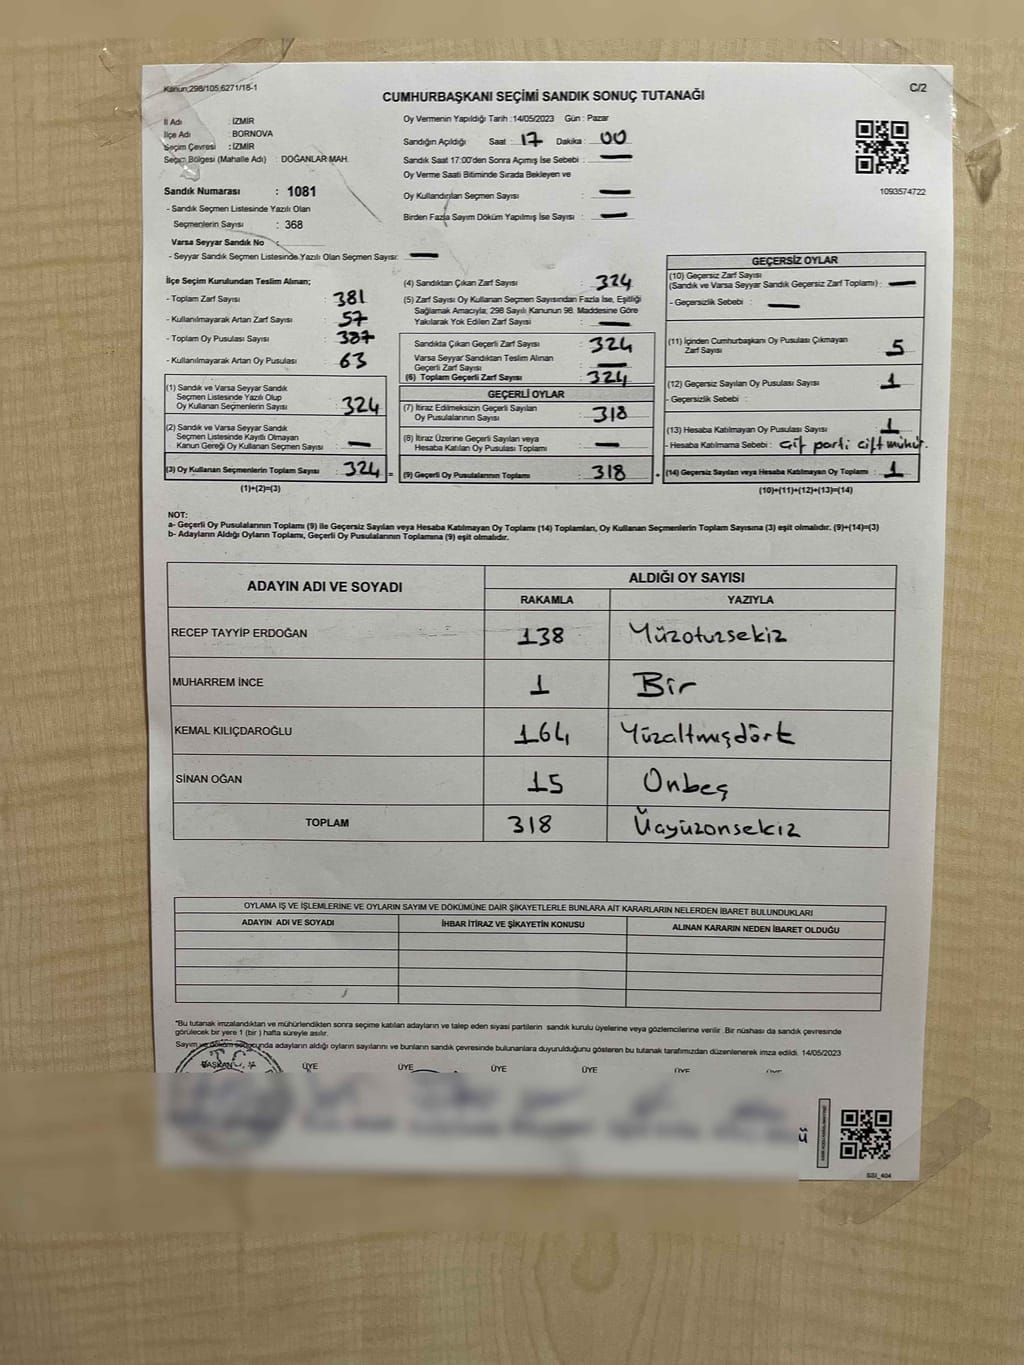 Kanun;298/105,6271/18-1
C/2
CUMHURBAŞKANI SEÇİMİ SANDIK SONUÇ TUTANAĞI
İl Adı : İZMİR
İlçe Adı : BORNOVA
Seçim Çevresi : İZMİR
Seçim Bölgesi (Mahalle Adı) : DOĞANLAR MAH.
Sandık Numarası : 1081
- Sandık Seçmen Listesinde Yazılı Olan
Seçmenlerin Sayısı : 368
Varsa Seyyar Sandık No :
- Seyyar Sandık Seçmen Listesinde Yazılı Olan Seçmen Sayısı: —
Oy Vermenin Yapıldığı Tarih :14/05/2023 Gün : Pazar
Sandığın Açıldığı Saat : 17 Dakika : 00
Sandık Saat 17:00'den Sonra Açımış İse Sebebi : —
Oy Verme Saati Bitiminde Sırada Bekleyen ve
Oy Kullandırılan Seçmen Sayısı : —
Birden Fazla Sayım Döküm Yapılmış İse Sayısı : —
1093574722
İlçe Seçim Kurulundan Teslim Alınan;
- Toplam Zarf Sayısı : 381
- Kullanılmayarak Artan Zarf Sayısı : 57
- Toplam Oy Pusulası Sayısı : 387
- Kullanılmayarak Artan Oy Pusulası : 63
(1) Sandık ve Varsa Seyyar Sandık
Seçmen Listesinde Yazılı Olup
Oy Kullanan Seçmenlerin Sayısı : 324
(2) Sandık ve Varsa Seyyar Sandık
Seçmen Listesinde Kayıtlı Olmayan
Kanun Gereği Oy Kullanan Seçmen Sayısı : —
(3) Oy Kullanan Seçmenlerin Toplam Sayısı : 324 =
(1)+(2)=(3)
(4) Sandıktan Çıkan Zarf Sayısı : 324
(5) Zarf Sayısı Oy Kullanan Seçmen Sayısından Fazla İse, Eşitliği
Sağlamak Amacıyla; 298 Sayılı Kanunun 98. Maddesine Göre
Yakılarak Yok Edilen Zarf Sayısı : —
Sandıkta Çıkan Geçerli Zarf Sayısı : 324
Varsa Seyyar Sandıktan Teslim Alınan
Geçerli Zarf Sayısı : —
(6) Toplam Geçerli Zarf Sayısı : 324
GEÇERLİ OYLAR
(7) İtiraz Edilmeksizin Geçerli Sayılan
Oy Pusulalarının Sayısı : 318
(8) İtiraz Üzerine Geçerli Sayılan veya
Hesaba Katılan Oy Pusulası Toplamı : —
(9) Geçerli Oy Pusulalarının Toplamı : 318 +
GEÇERSİZ OYLAR
(10) Geçersiz Zarf Sayısı
(Sandık ve Varsa Seyyar Sandık Geçersiz Zarf Toplamı) : —
- Geçersizlik Sebebi : —
(11) İçinden Cumhurbaşkanı Oy Pusulası Çıkmayan
Zarf Sayısı : 5
(12) Geçersiz Sayılan Oy Pusulası Sayısı : 1
- Geçersizlik Sebebi :
(13) Hesaba Katılmayan Oy Pusulası Sayısı : 1
- Hesaba Katılmama Sebebi : Çif parti çift mühür.
(14) Geçersiz Sayılan veya Hesaba Katılmayan Oy Toplamı : 1
(10)+(11)+(12)+(13)=(14)
NOT:
a- Geçerli Oy Pusulalarının Toplamı (9) ile Geçersiz Sayılan veya Hesaba Katılmayan Oy Toplamı (14) Toplamları, Oy Kullanan Seçmenlerin Toplam Sayısına (3) eşit olmalıdır. (9)+(14)=(3)
b- Adayların Aldığı Oyların Toplamı, Geçerli Oy Pusulalarının Toplamına (9) eşit olmalıdır.
ADAYIN ADI VE SOYADI
ALDIĞI OY SAYISI
RAKAMLA YAZIYLA
RECEP TAYYİP ERDOĞAN 138 Yüzotuzsekiz
MUHARREM İNCE 1 Bir
KEMAL KILIÇDAROĞLU 164 Yüzaltmışdört
SİNAN OĞAN 15 Onbeş
TOPLAM 318 Üçyüzonsekiz
OYLAMA İŞ VE İŞLEMLERİNE VE OYLARIN SAYIM VE DÖKÜMÜNE DAİR ŞİKAYETLERLE BUNLARA AİT KARARLARIN NELERDEN İBARET BULUNDUKLARI
ADAYIN ADI VE SOYADI İHBAR İTİRAZ VE ŞİKAYETİN KONUSU ALINAN KARARIN NEDEN İBARET OLDUĞU
*Bu tutanak imzalandıktan ve mühürlendikten sonra seçime katılan adayların ve talep eden siyasi partilerin sandık kurulu üyelerine veya gözlemcilerine verilir. Bir nüshası da sandık çevresinde
görülecek bir yere 1 (bir ) hafta süreyle asılır.
Sayım ve döküm sonucunda adayların aldığı oyların sayılarını ve bunların sandık çevresinde bulunanlara duyurulduğunu gösteren bu tutanak tarafımızdan düzenlenerek imza edildi. 14/05/2023
BAŞKAN ÜYE ÜYE ÜYE ÜYE ÜYE
T.C.
SSI_404